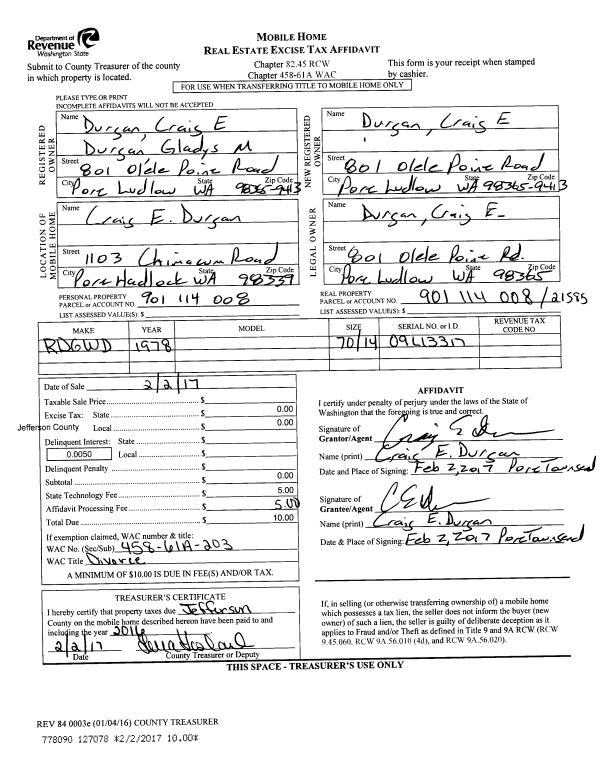 Department of
Revenue
Washington State
MOBILE HOME
REAL ESTATE EXCISE TAX AFFIDAVIT
Submit to County Treasurer of the county
in which property is located.
Chapter 82.45 RCW
Chapter 458-61A WAC
This form is your receipt when stamped
by cashier.
FOR USE WHEN TRANSFERRING TITLE TO MOBILE HOME ONLY
PLEASE TYPE OR PRINT
INCOMPLETE AFFIDAVITS WILL NOT BE ACCEPTED
REGISTERED OWNER
Name
Durgan, Craig E
Durgan Gladys M
Street
801 Olele Point Road
City State Zip Code
Port Ludlow WA 98365-9413
NEW REGISTERED OWNER
Name
Durgan, Craig E
801 Olele Point Road
Street
City State Zip Code
Port Ludlow WA 98365-9413
LOCATION OF MOBILE HOME
Name
Craig E. Durgan
Street
1103 Chimacum Road
City State Zip Code
Port Hadlock WA 98339
LEGAL OWNER
Name
Durgan, Craig E
Street
801 Olele Point Rd.
City State Zip Code
Port Ludlow WA 98365
PERSONAL PROPERTY
PARCEL or ACCOUNT NO. 901 114 008
LIST ASSESSED VALUE(S): $
REAL PROPERTY
PARCEL or ACCOUNT NO. 901 114 008/21585
LIST ASSESSED VALUE(S): $
MAKE YEAR MODEL SIZE SERIAL NO. or I.D. REVENUE TAX CODE NO
RDGWD 1978 70/14 09L13317
Date of Sale 2/2/17
Taxable Sale Price $
Excise Tax: State $ 0.00
Jefferson County Local $ 0.00
Delinquent Interest: State $
0.0050 Local $
Delinquent Penalty $
Subtotal $ 0.00
State Technology Fee $ 5.00
Affidavit Processing Fee $ 5.00
Total Due $ 10.00
If exemption claimed, WAC number & title:
WAC No. (Sec/Sub) 458-61A-203
WAC Title Divorce
A MINIMUM OF $10.00 IS DUE IN FEE(S) AND/OR TAX.
AFFIDAVIT
I certify under penalty of perjury under the laws of the State of
Washington that the foregoing is true and correct.
Signature of
Grantor/Agent
Name (print) Craig E. Durgan
Date and Place of Signing: Feb 2, 2017 Port Townsend
Signature of
Grantee/Agent
Name (print) Craig E. Durgan
Date & Place of Signing: Feb 2, 2017 Port Townsend
TREASURER'S CERTIFICATE
I hereby certify that property taxes due Jefferson
County on the mobile home described hereon have been paid to and
including the year 2016
2/2/17
Date County Treasurer or Deputy
If, in selling (or otherwise transferring ownership of) a mobile home
which possesses a tax lien, the seller does not inform the buyer (new
owner) of such a lien, the seller is guilty of deliberate deception as it
applies to Fraud and/or Theft as defined in Title 9 and 9A RCW (RCW
9.45.060, RCW 9A.56.010 (4d), and RCW 9A.56.020).
THIS SPACE - TREASURER'S USE ONLY
REV 84 0003e (01/04/16) COUNTY TREASURER
778090 127078 *2/2/2017 10.00*